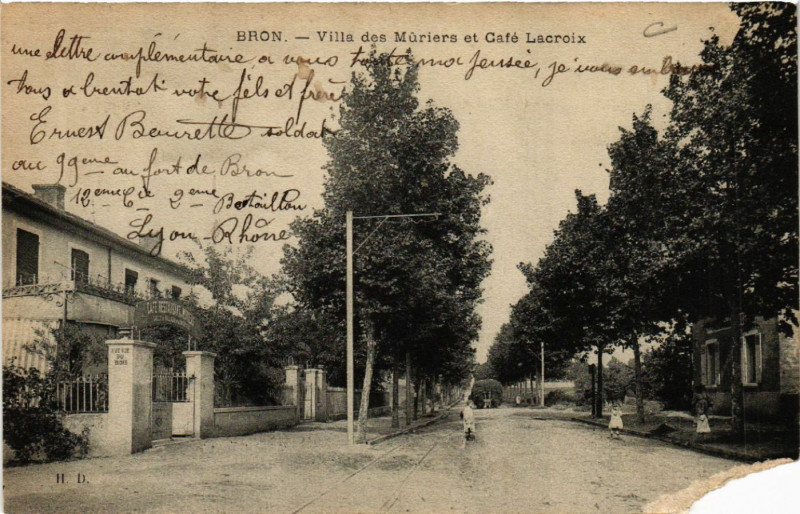 BRON. — Villa des Mûriers et Café Lacroix
une lettre complémentaire, a vous toute ma pensée, je vous
tous votre fils et frère
Ernest Beurette soldat
au 99eme au fort de Bron
12eme Cie 2eme Bataillon
Lyon-Rhône
CAFE RESTAURANT
H. D.